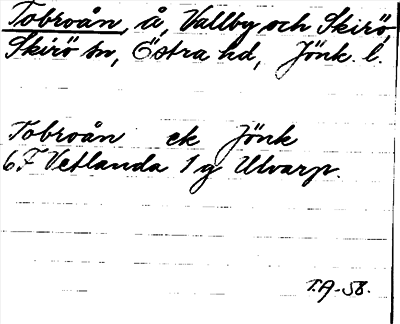 Tobroån, å, Vallby och Skirö,
Skirö sn, Östra hd, Jönk. l.
Tobroån ek Jönk
6F Vetlanda 1 g Ulvarp.
T.A-58.